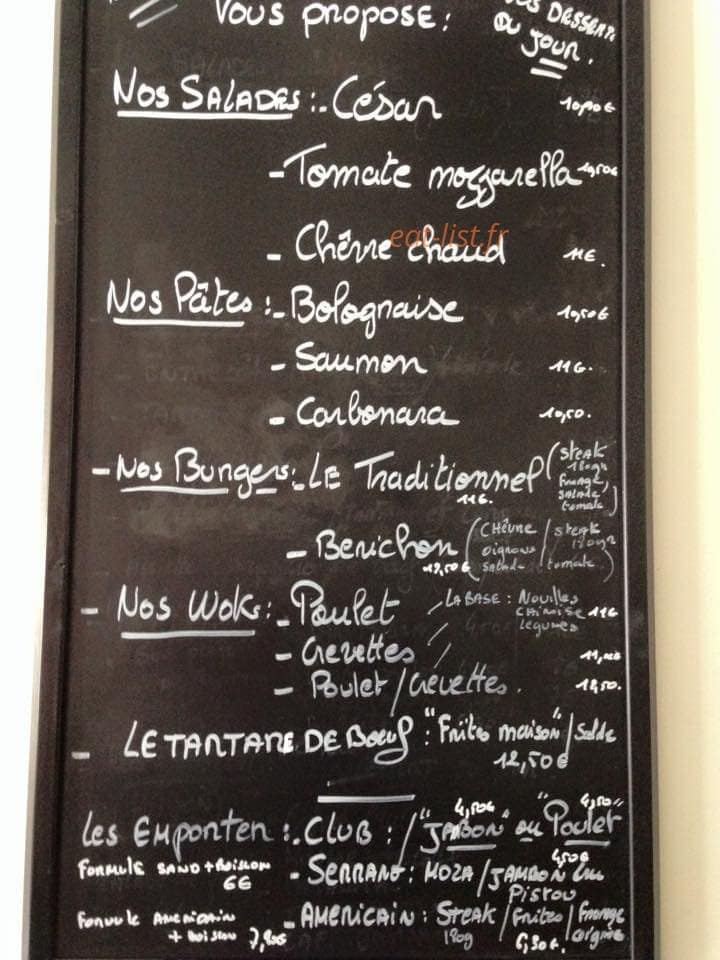 Vous propose :
NOS DESSERTS
DU JOUR.
NOS SALADES :- César
- Tomate mozzarella
eat-list.fr
- Chèvre chaud 11€.
Nos Pâtes :- Bolognaise 10,50€
- Saumon 11€.
- Carbonara 10,50.
- Nos Burgers :- LE Traditionnel 11€. (STEAK 180gr
Fromage,
salade
tomate)
- Berichon (CHÈVRE / STEAK 180gr
oignons
salade / tomate)
- Nos Woks :- Poulet LA BASE : Nouilles
CHINOISE 11€
légumes
- Crevettes
- Poulet / Crevettes. 12,50.
- LE TARTARE DE BOEUF : "Frites maison" / Salde
12,50€
Les Emporter :- CLUB : / "JAMBON" 4,50€ ou "Poulet" 4,50"
FORMULE SAND + BOISSON
6€
- SERRANO : MOZA / JAMBON CRU 4,50€
Pistou
Formule AMERICAIN
+ BOISSON 7,80€
- AMERICAIN : STEAK / Frites / Fromage
180g 6,50€.